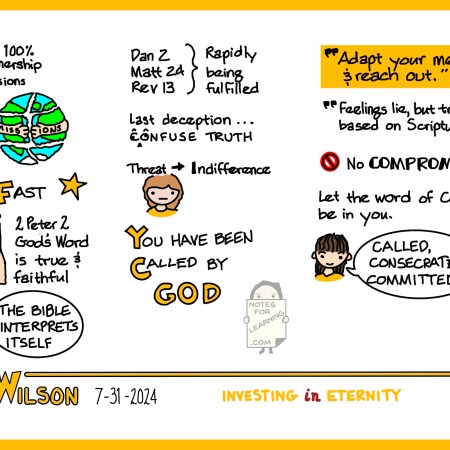 100%
MISSIONS
FAST
2 Peter 2
God's Word
is true &
faithful
THE BIBLE
INTERPRETS
ITSELF
Dan 2
Matt 24
Rev 13
Rapidly
being
fulfilled
Last deception...
CONFUSE TRUTH
Threat → Indifference
YOU HAVE BEEN
CALLED BY
GOD
NOTES
FOR
LEARNING
.COM
"Adapt your me
& reach out."
"Feelings lie, but tr
based on Scriptu
NO COMPROM
Let the word of C
be in you.
CALLED,
CONSECRATE
COMMITTED
WILSON 7-31-2024 INVESTING in ETERNITY